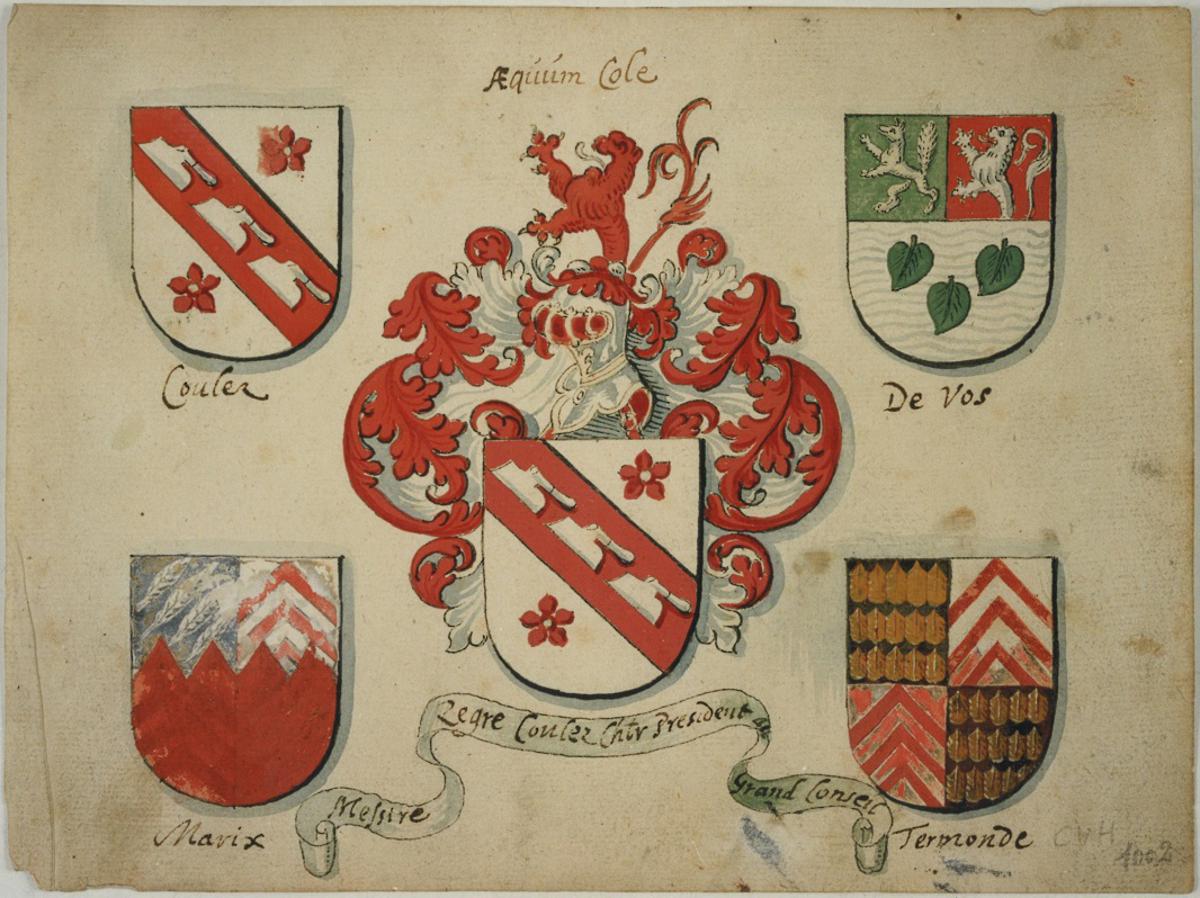 Æquum Cole
Coulez
De Vos
Messire Regre Coulez Chlr President au Grand Conseil
Marix
Termonde
CVH